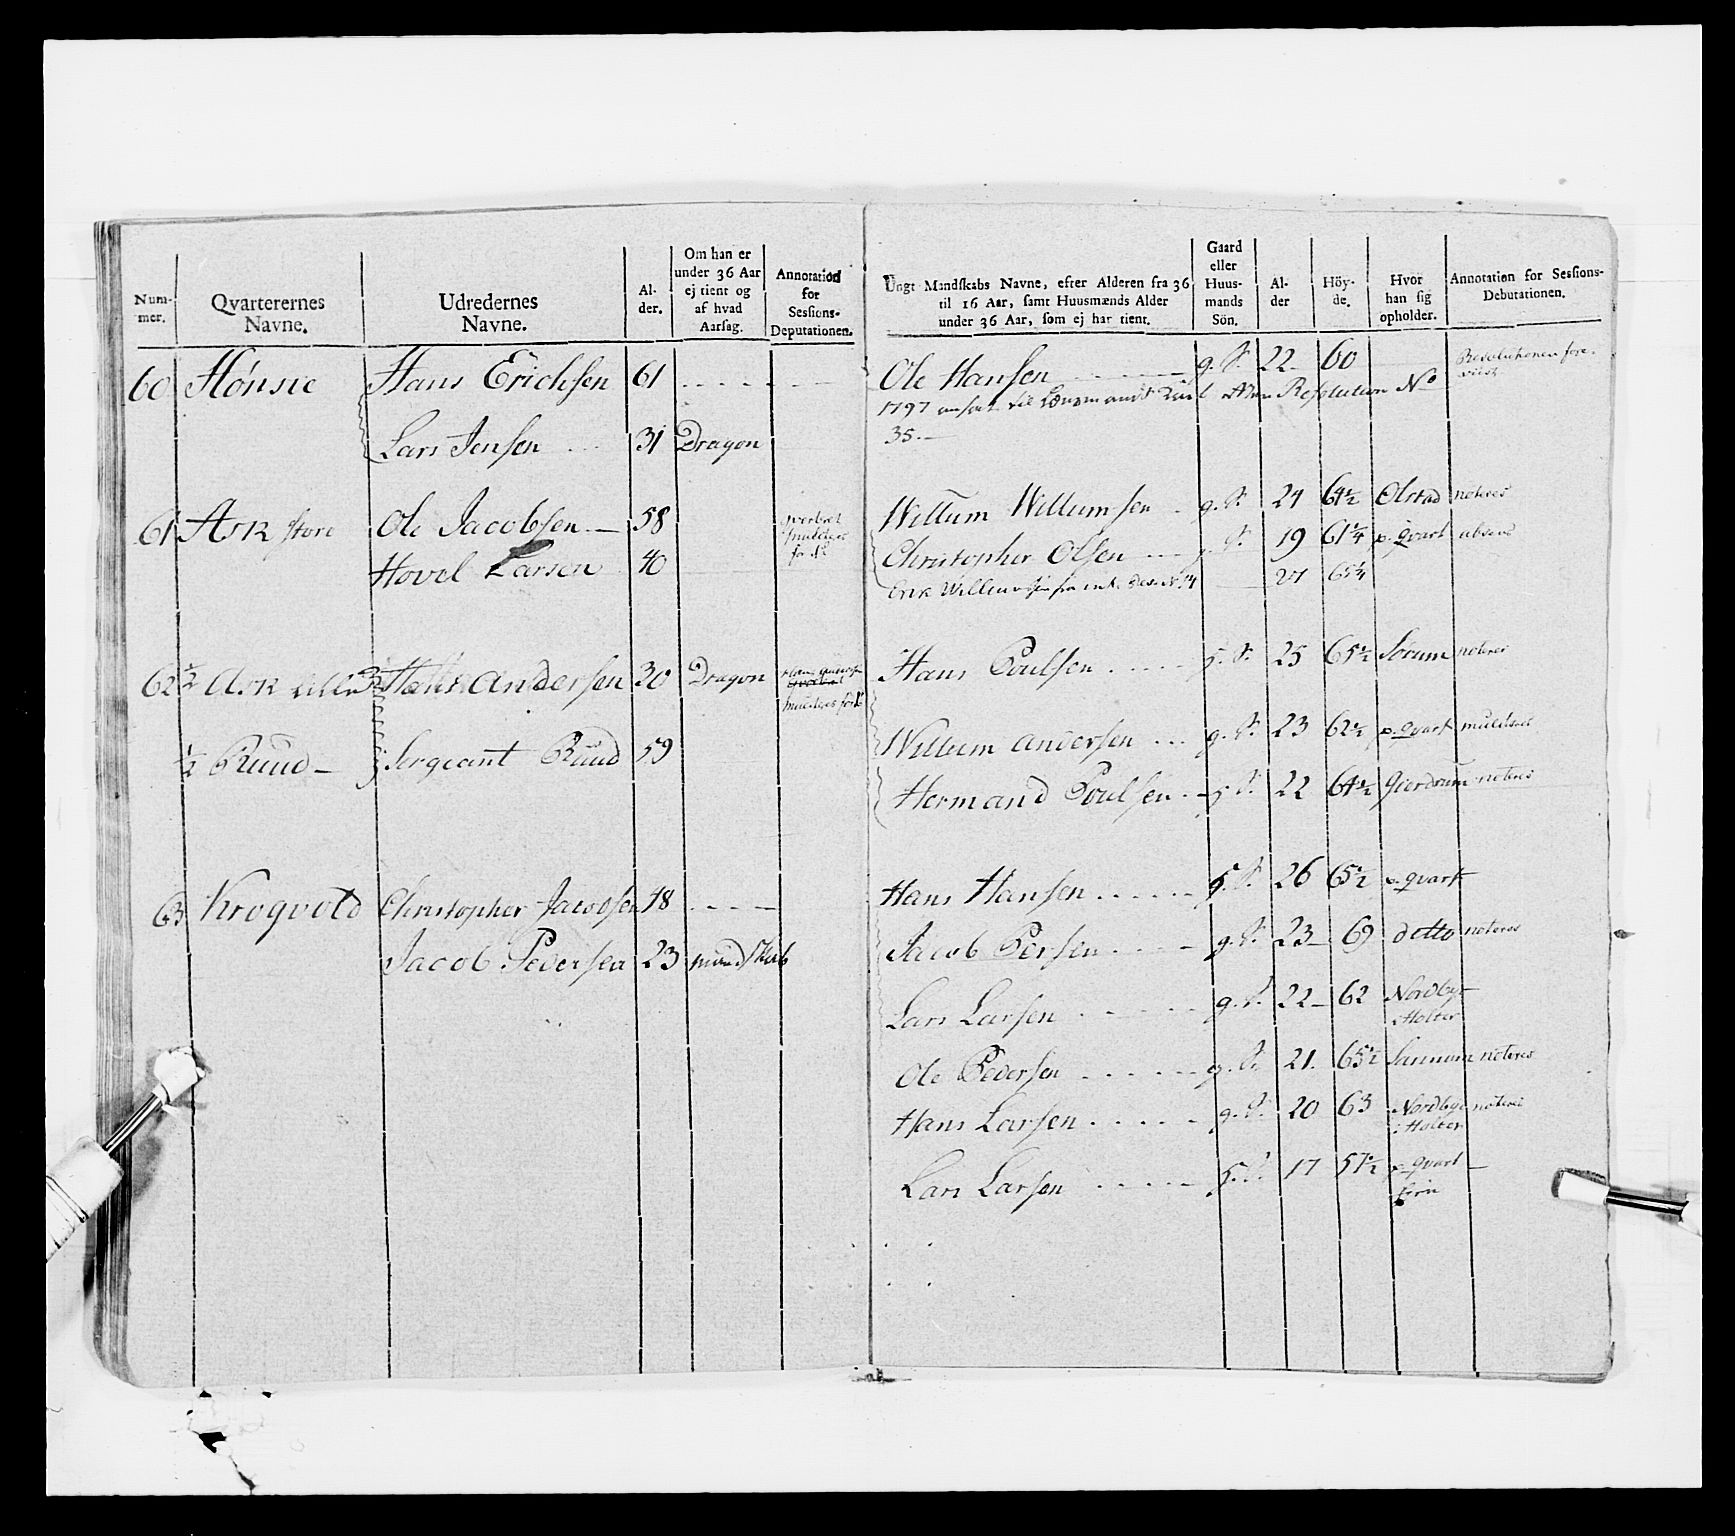 Num-
mer.
Qvarterernes
Navne.
Udredernes
Navne.
Al-
der.
Om han er
under 36 Aar
ej tient og
af hvad
Aarsag.
Annotation
for
Sessions-
Deputationen.
60 Hönsie Hans Erichsen 61
Lars Jensen 31 Dragon
61 Ask store Ole Jacobsen 58
Hovel Larsen 40
62 ½ Ask lille Hans Andersen 30 Dragon
½ Ruud Sergeant Ruud 59
63 Krogvold Christopher Jacobsen 48
Jacob Pedersen 23 mandskab
Ungt Mandskabs Navne, efter Alderen fra 36
til 16 Aar, samt Huusmænds Alder
under 36 Aar, som ej har tient.
Gaard
eller
Huus-
mands
Sön.
Al-
der
Höy-
de.
Hvor
han sig
opholder.
Annotation for Sessions-
Debutationen.
Ole Hansen g. S. 22 60 Resolutionen fore-
viist
1797 ansat til Lensmand Resolution No
35.
Willum Willumsen g. S. 24 64½ Olstad noteres
Christopher Olsen g. S. 19 61¼ p. qvart absens
Erik
Hans Poulsen g. S. 25 65½ Sörum noteres
Willum Andersen g. S. 23 62½ p. qvart
Hermand Poulsen g. S. 22 64½ Gierdrum noteres
Hans Hansen g. S. 26 65½ p. qvart
Jacob Persen g. S. 23 69 detto noteres
Lars Larsen g. S. 22 62 Nordbye
Holter
Ole Pedersen g. S. 21 65½ noteres
Hans Larsen g. S. 20 63 Nordbye noteres
Holter
Lars Larsen g. S. 17 57½ p. qvart